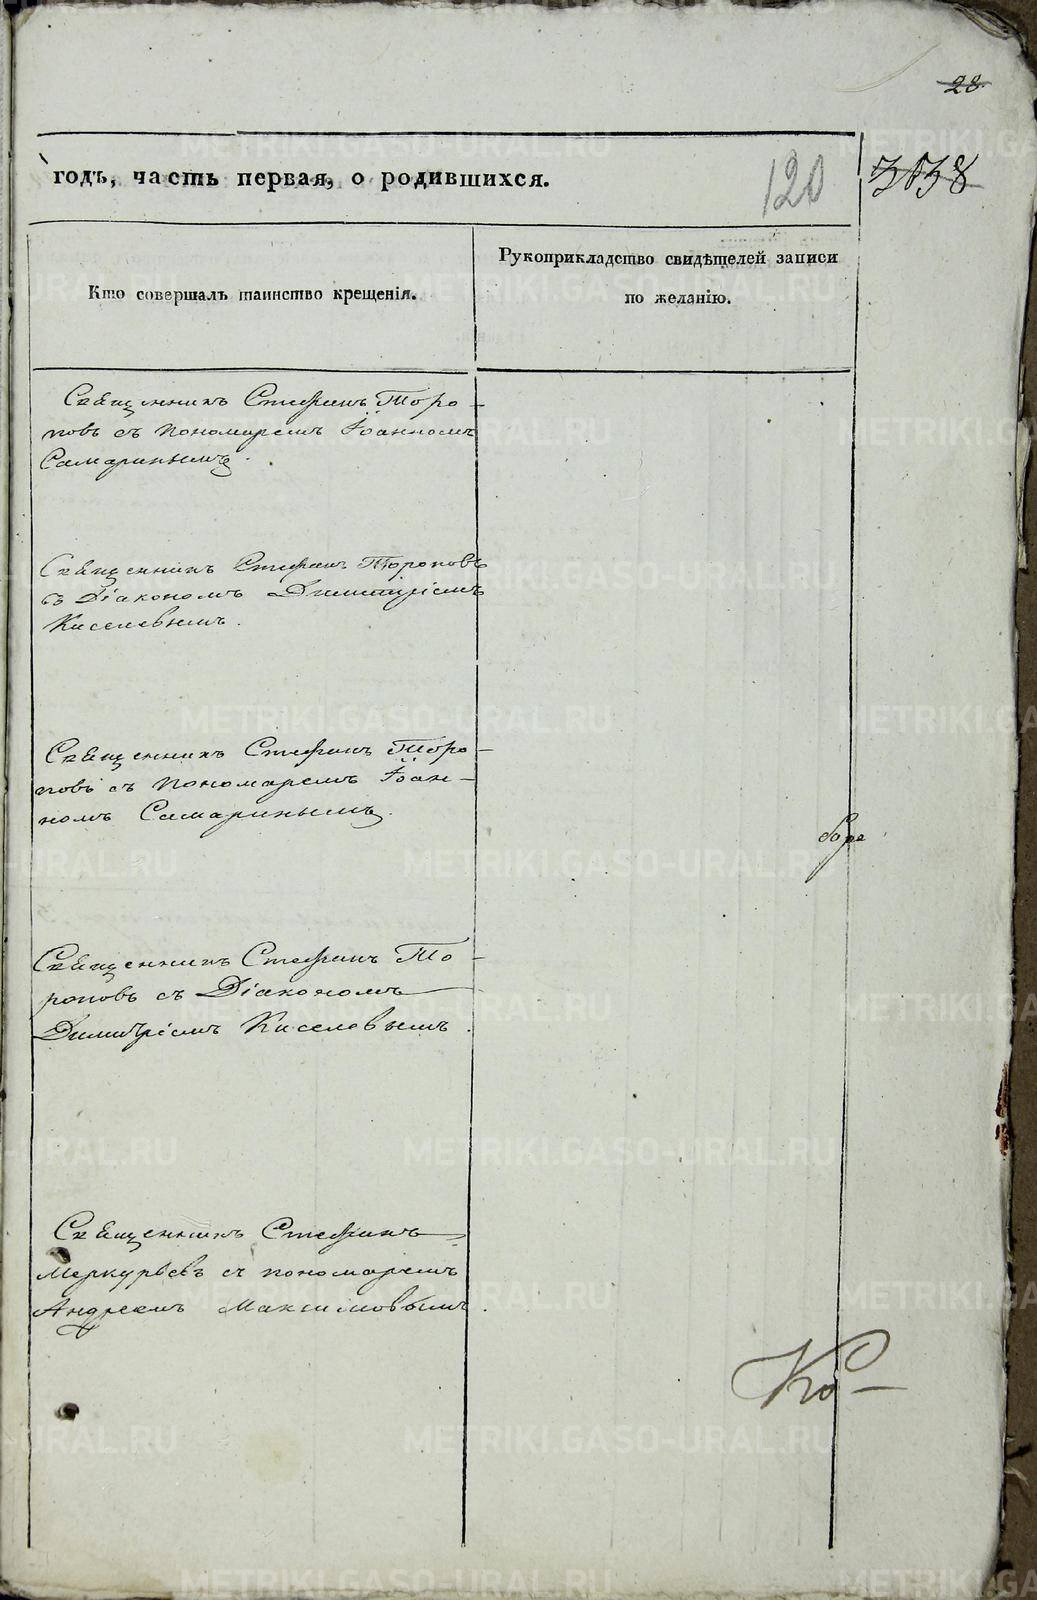 28
годъ, часть первая, о родившихся.
120
3838
Кто совершалъ таинство крещенія.
Рукоприкладство свидѣтелей записи
по желанію.
Священникъ Стефанъ Торо-
повъ съ пономаремъ Іоанномъ
Самаринымъ.
Священникъ Стефанъ Тороповъ
съ Діакономъ Димитріемъ
Киселевымъ.
Священникъ Стефанъ Торо-
повъ съ пономаремъ Іоан-
номъ Самаринымъ.
Священникъ Стефанъ То-
роповъ съ Діакономъ
Димитріемъ Киселевымъ.
Священникъ Стефанъ
Меркурьевъ съ пономаремъ
Андреемъ Максимовымъ.
METRIKI.GASO-URAL.RU